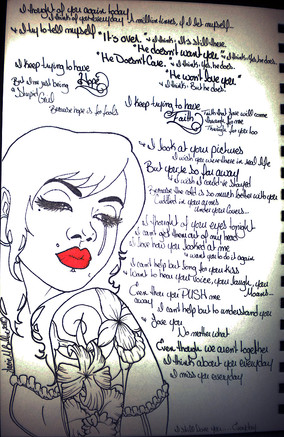 I thought of you again today
I think of you everyday a million times, if I let myself
& I try to tell myself
"It's over." & I think, It's still there.
"He doesn't want you" & I think, Yes, he does.
"He Doesn't Care." & I think, Yes, he does.
"He wont love you"
& I think, But he does.
I keep trying to have
Hope
But I'm just being
a Stupid Girl
Because hope is for fools
I keep trying to have
Faith
Faith that love will come
through for me
Through for you too
& I look at your pictures
I wish you were there in real life
But you're so far away
& I wish I could've stayed
Because the cold is so much better with you
Cuddled in your arms
Under your covers...
I thought of your eyes tonight
I can't get them out of my head
I love how you looked at me
I want you to do it again
I can't help but long for you kiss
I want to hear your voice, you laugh, you
Moans...
Even tho you PUSH me
away
I cant help but to understand you
& love you
No mother what
Even though we aren't together
I think about you everyday
I miss you everyday
I still love you...